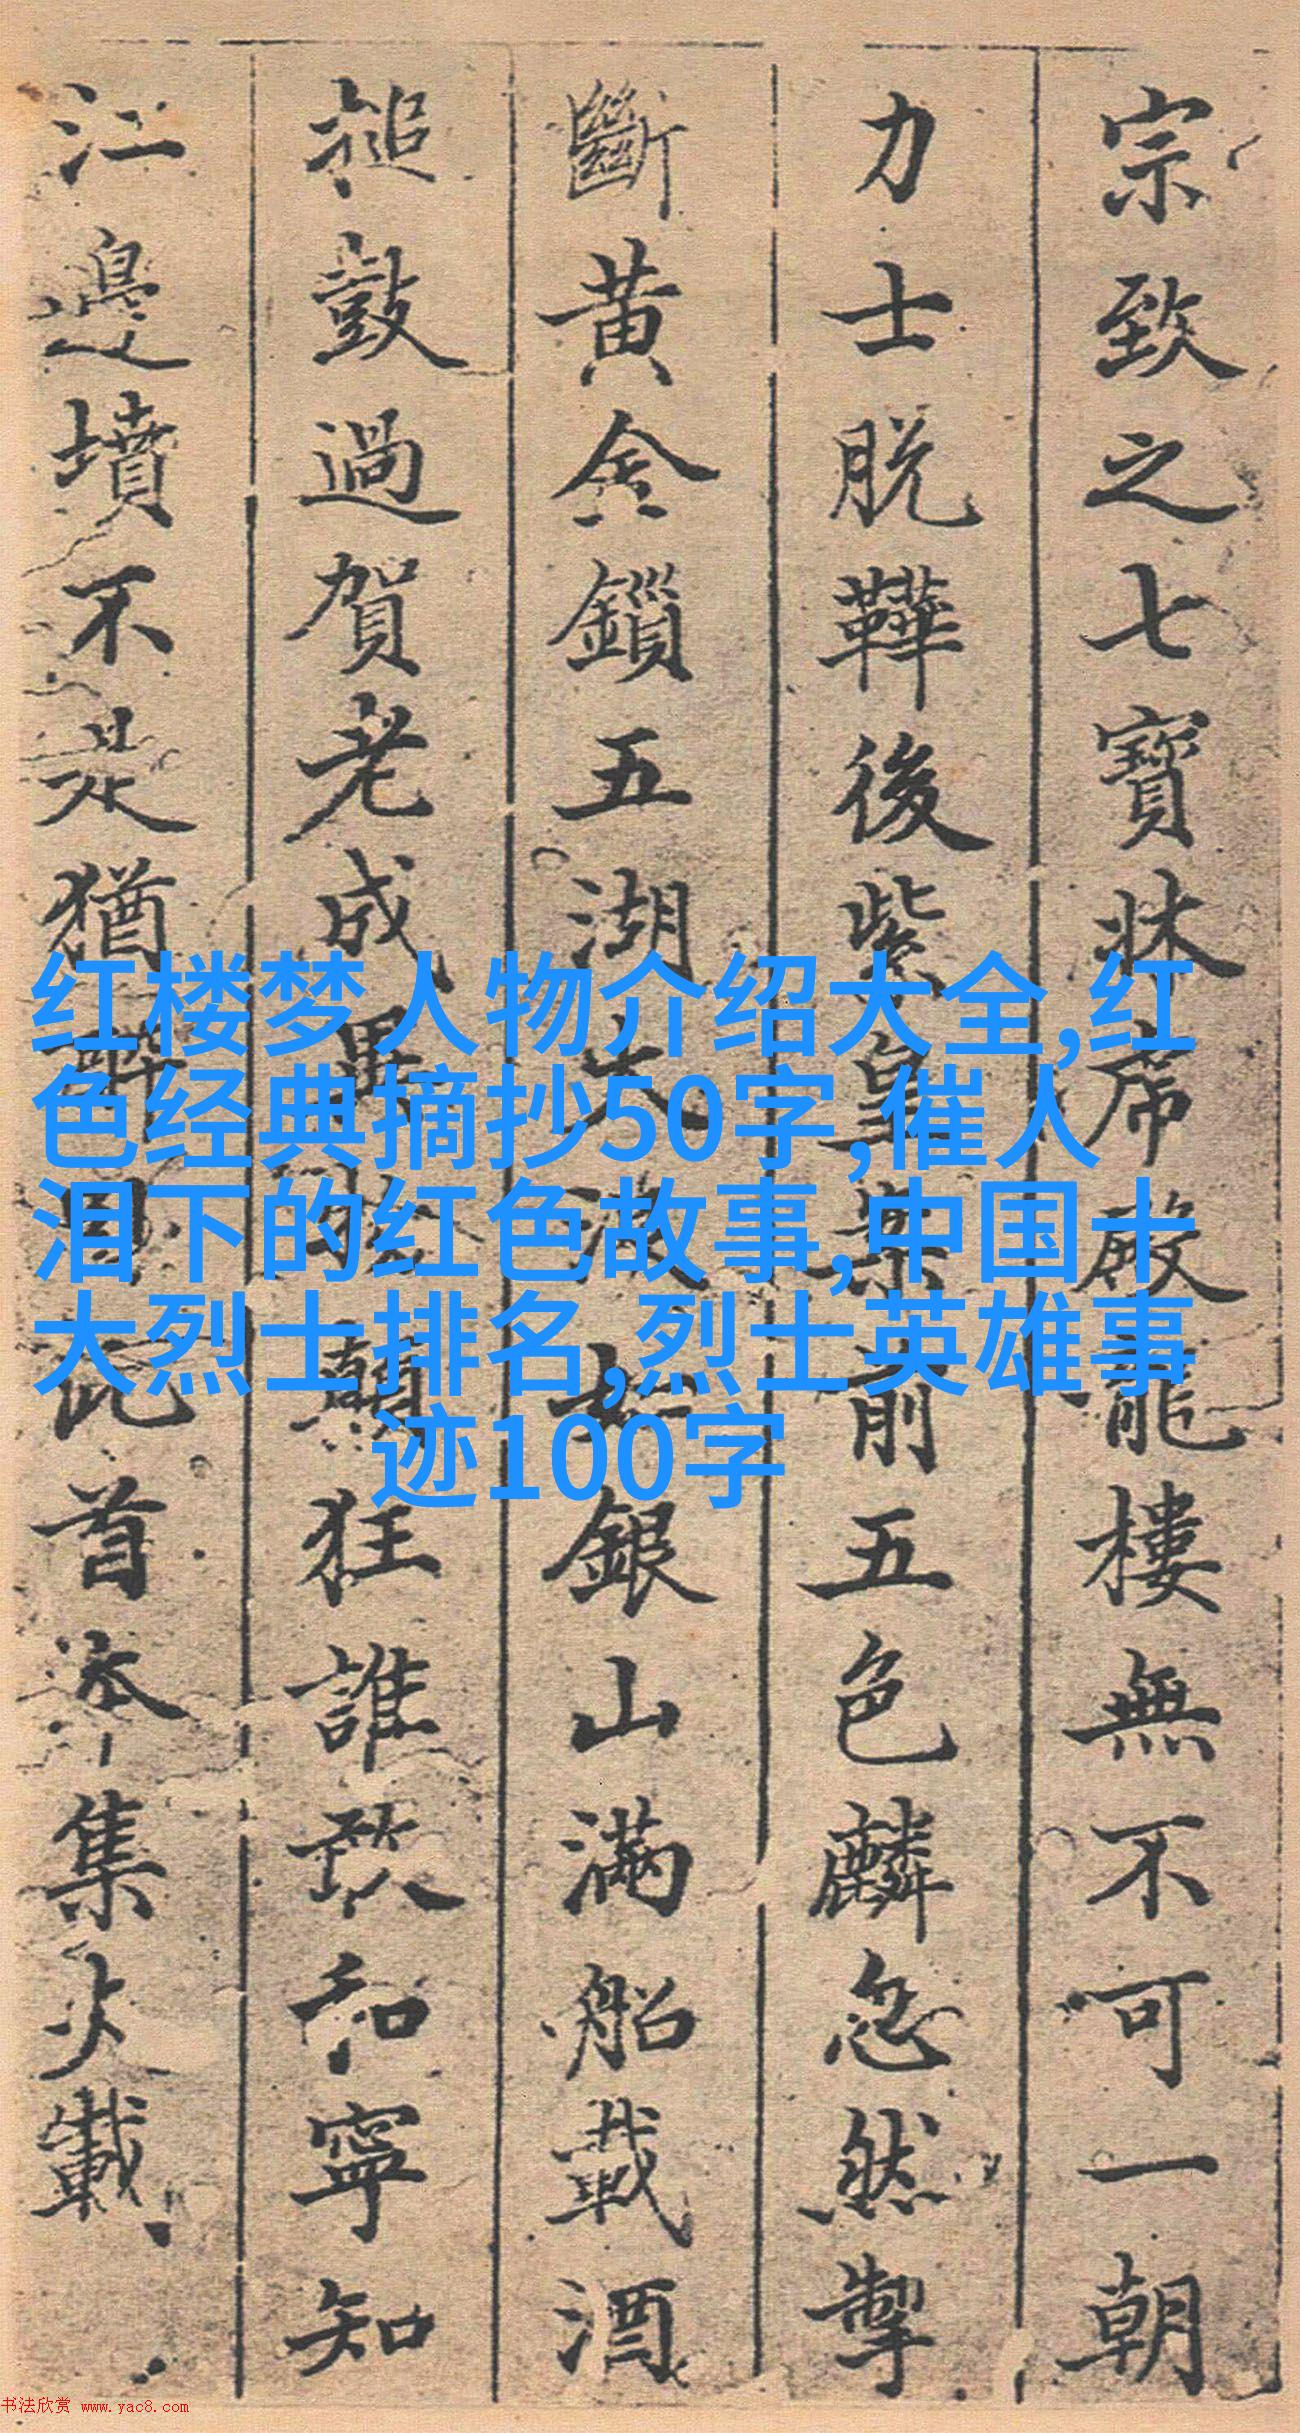 宗致之七寶牀席殿龍樓無不可一朝
力士脫鞾後紫皇案前五色麟忽然掣
斷黃金鎖五湖大浪如銀山滿船載酒
搥鼓過賀老成異物顛狂誰敢和寧知
江邊墳不是猶醉眠此首本集失載
红楼梦人物介绍大全,红
色经典摘抄50字,催人
泪下的红色故事,中国十
大烈士排名,烈士英雄事
迹100字
书法欣赏 www.yac8.com